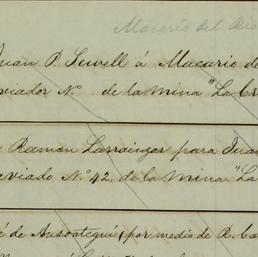 Macario del Rio
Juan P. Sewell á Macario de
aviador No. de la mina "La Cr
Ramon Larrainzar para Jua
aviado No. 42. de la mina "La
é de Ansoategui (por medio de R. La